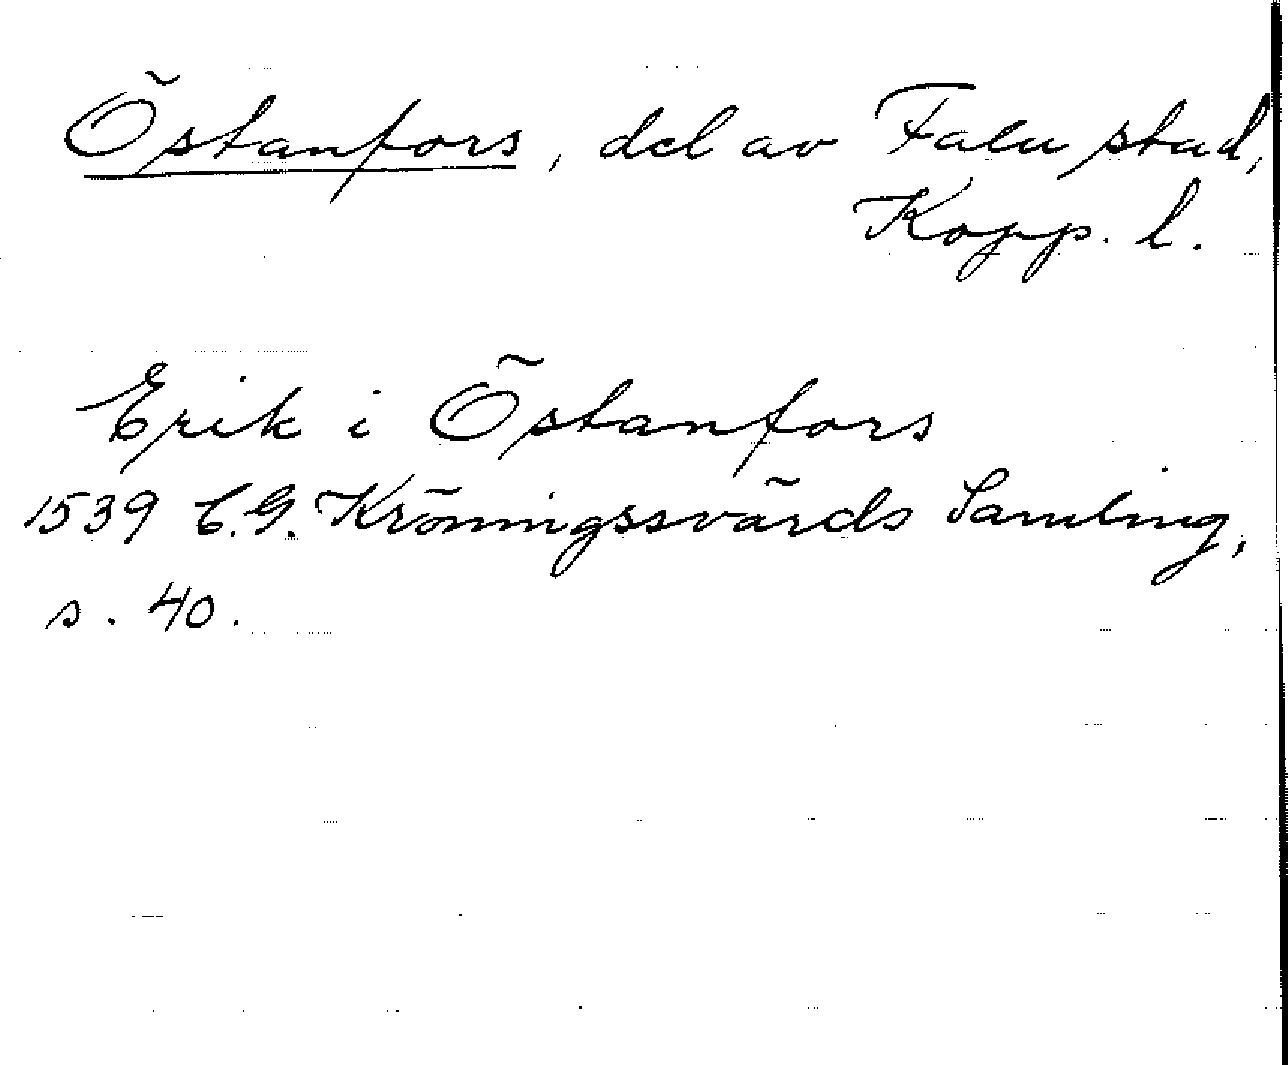 Östanfors, del av Falu stad,
Kopp. l.
Erik i Östanfors
1539 C.G. Kröningssvärds Samling,
s. 40.